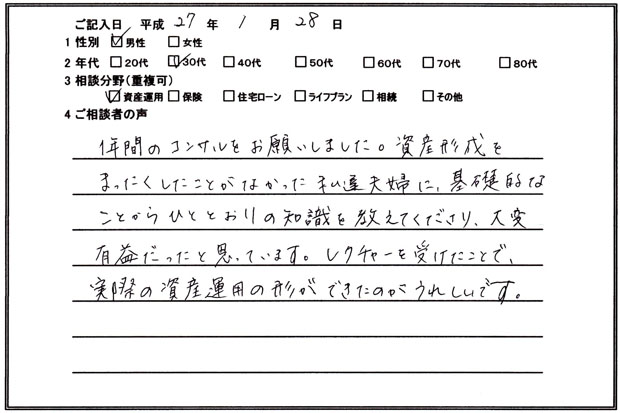 ご記入日 平成 27 年 1 月 28 日
1 性別 ☑男性 □女性
2 年代 □20代 ☑30代 □40代 □50代 □60代 □70代 □80代
3 相談分野(重複可)
☑資産運用 □保険 □住宅ローン □ライフプラン □相続 □その他
4 ご相談者の声
1年間のコンサルをお願いしました。資産形成を
まったくしたことがなかった私達夫婦に、基礎的な
ことからひととおりの知識を教えてくださり、大変
有益だったと思っています。レクチャーを受けたことで、
実際の資産運用の形ができたのがうれしいです。